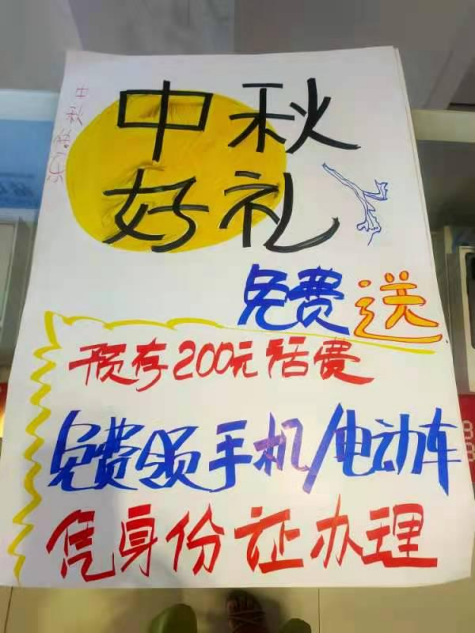 中秋
好礼
免费送
预存200元话费
免费领手机/电动车
凭身份证办理